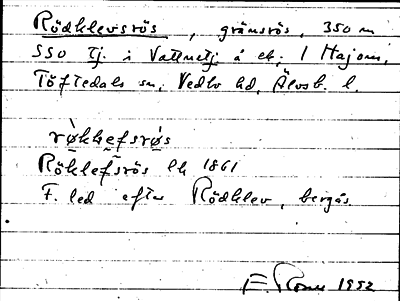 Rödklevsrös, gränsrös, 350 m
SSO tj. i Vattnetj å ek; 1 Hajom,
Töftedals sn, Vedbo hd, Älvsb. l.
Röklefsrös lk 1861
F. led efter Rödklev, bergås.
1952